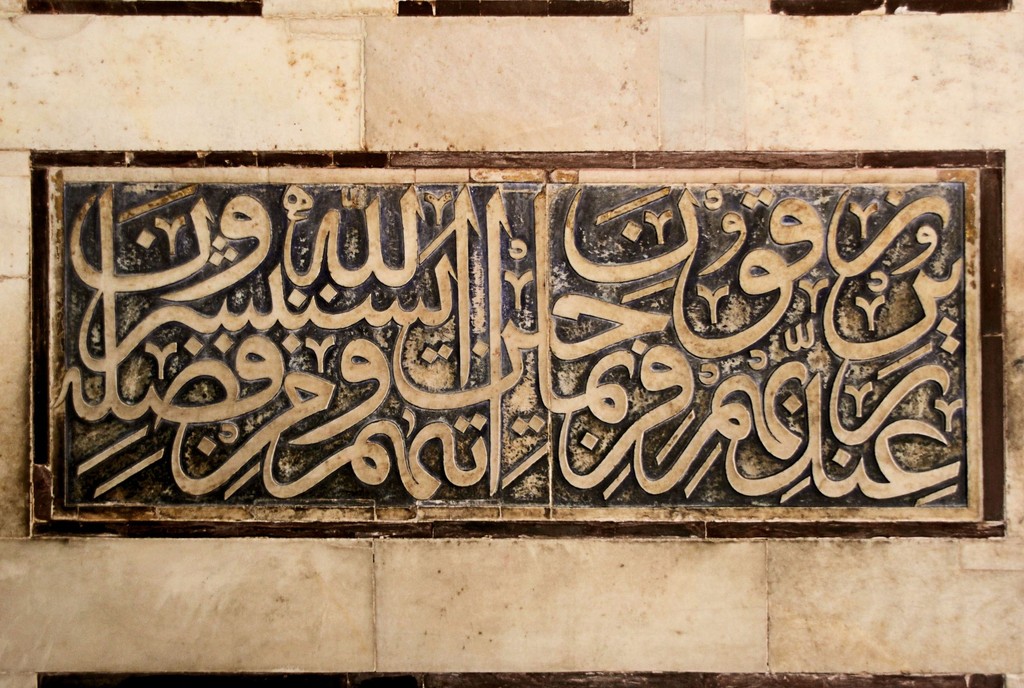 عند ربهم يرزقون فرحين بما اتىهم الله من فضله ويستبشرون